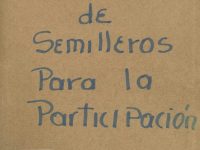 de
Semilleros
Para la
Participación